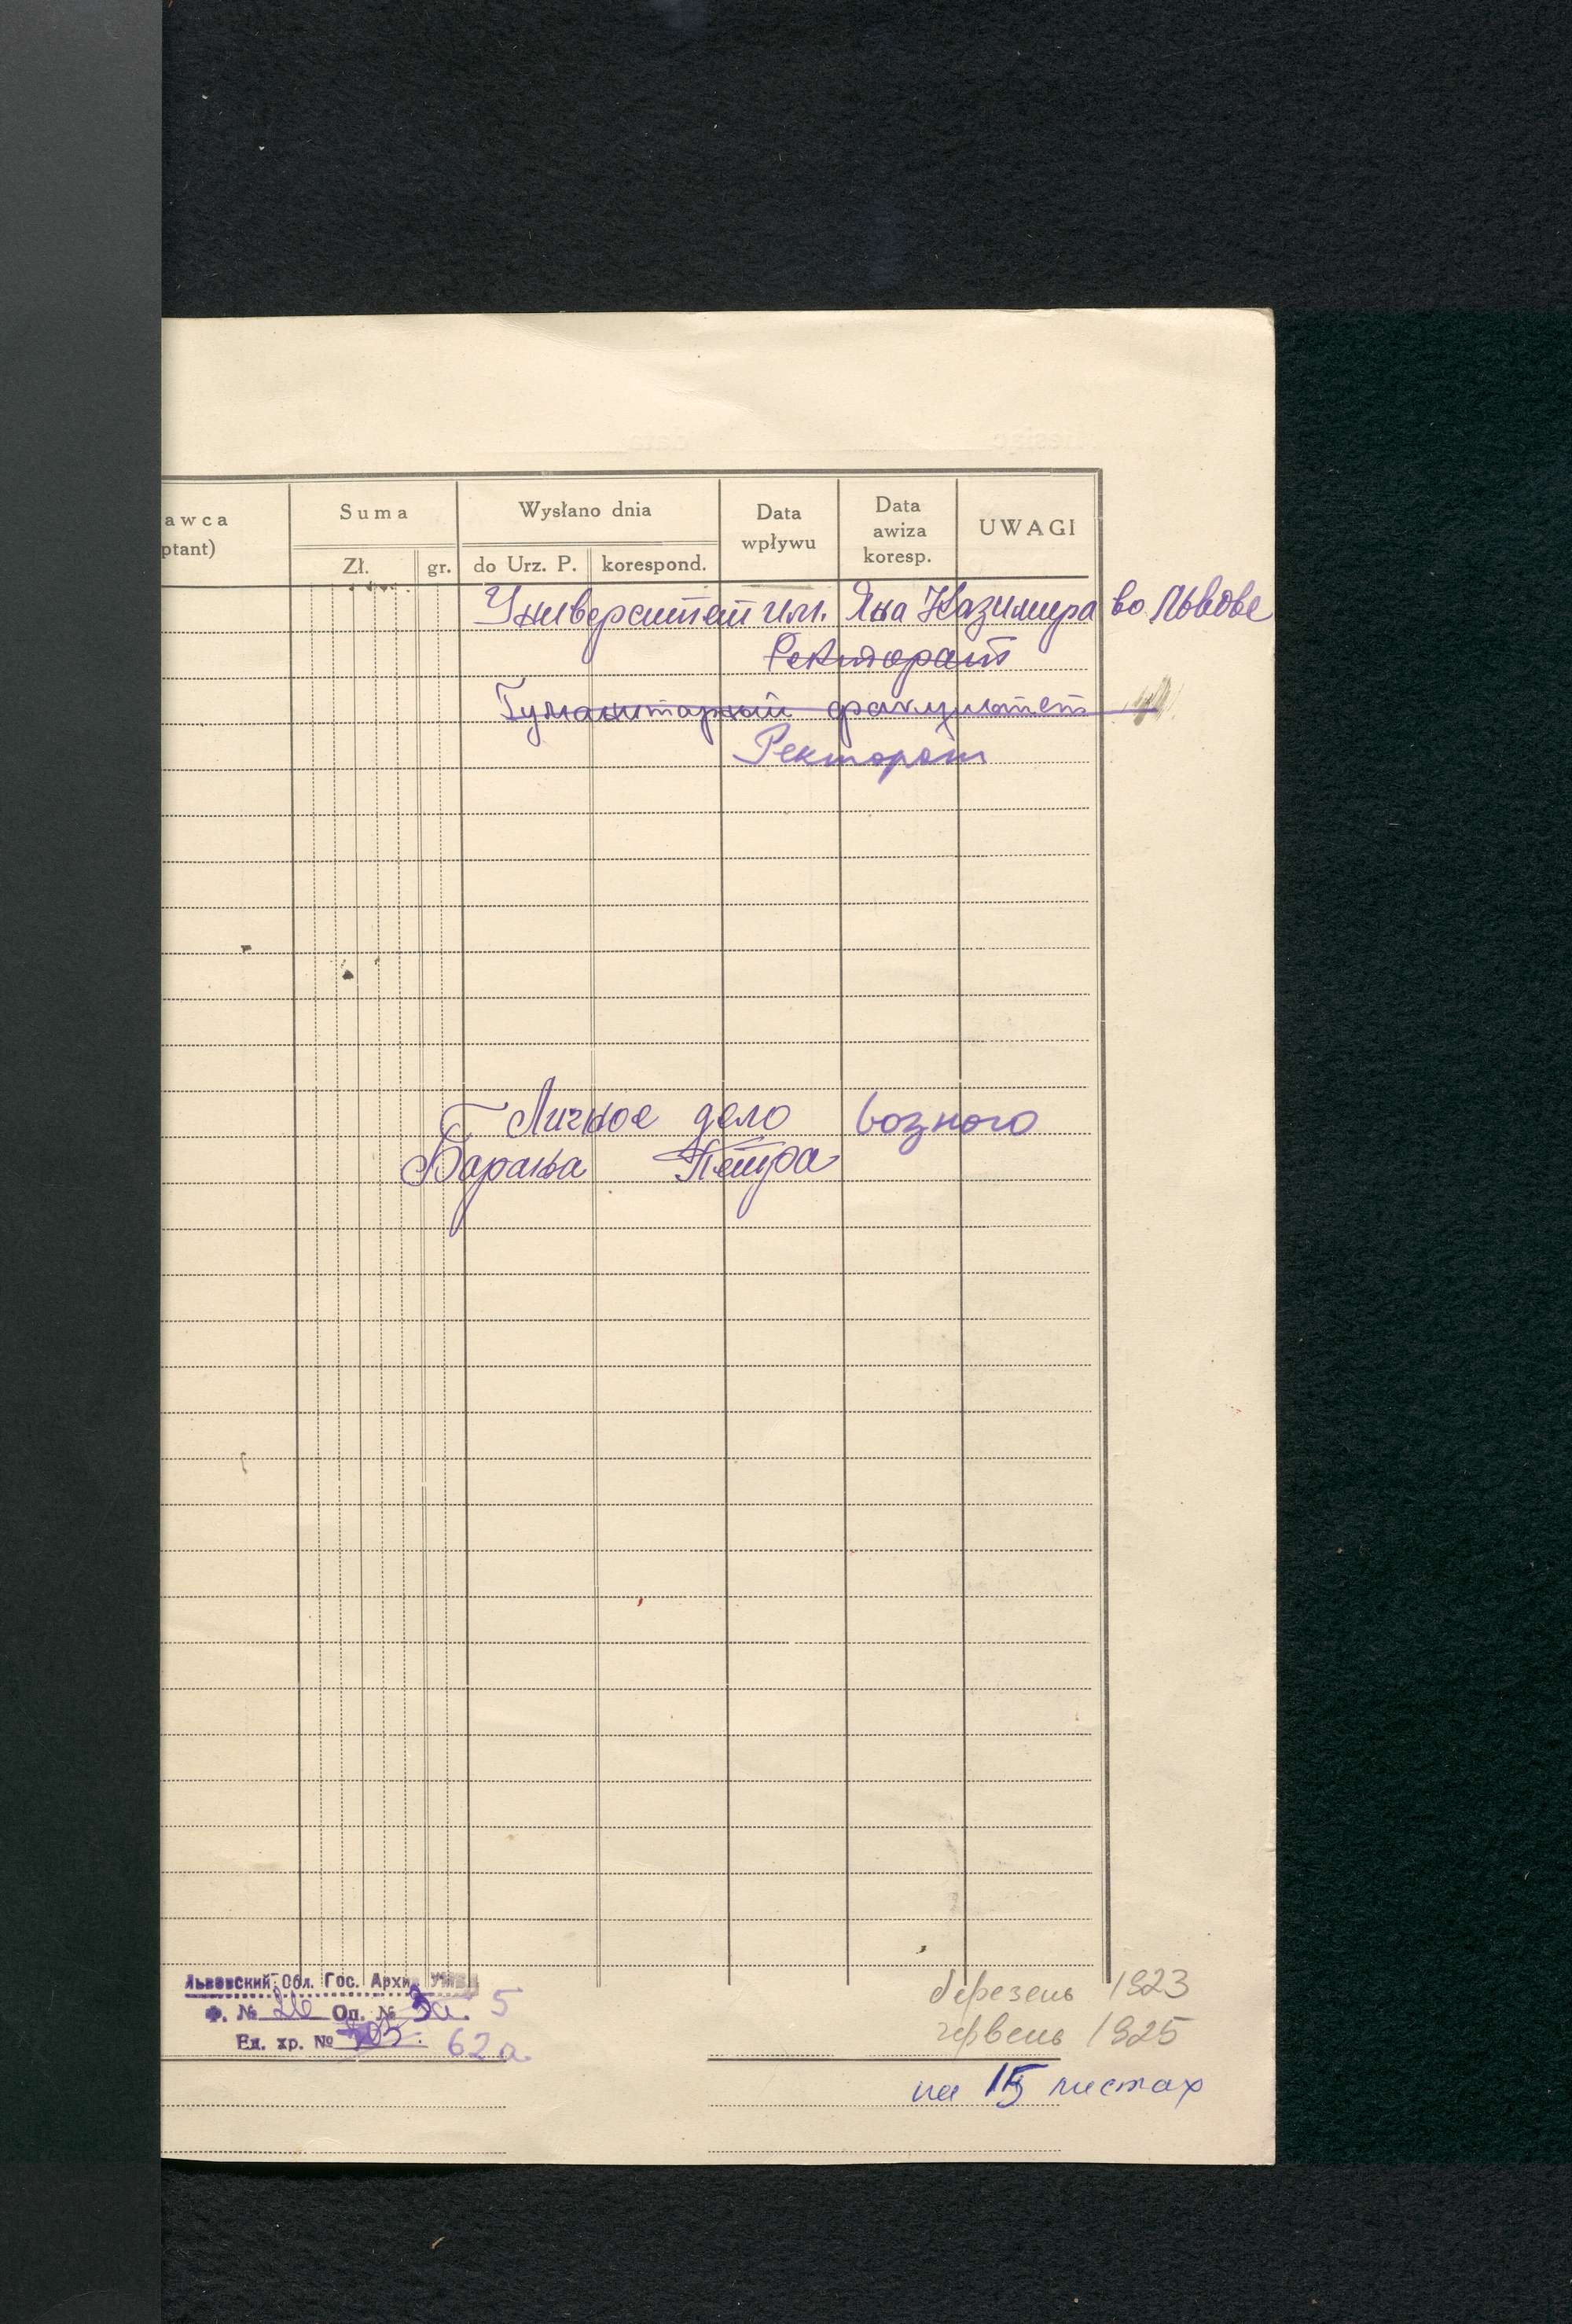 awca
ptant)
Suma
Zł. gr.
Wysłano dnia
do Urz. P. korespond.
Data
wpływu
Data
awiza
koresp.
UWAGI
Университет им. Яна Казимира во Львове
Ректорат
Гуманитарный факультет
Ректорат
Личное дело возного
Бараньа Петра
Львовский Обл. Гос. Архив УМВД
Ф. № 26 Оп. № 3а. 5
Ед. хр. № 105. 62а
березень 1923
червень 1925
на 15 листах